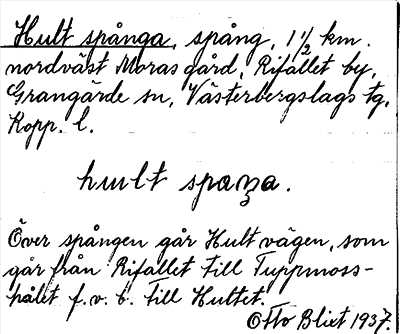 Hult spånga, spång, 1 1/2 km.
nordväst Moras gård, Rifallet by,
Grangärde sn, Västerbergslags tg,
Kopp. l.
hult spaŋa.
Över spången går Hultvägen, som
går från Rifallet till Tuppmoss-
hålet f.v.b. till Hultet.
Otto Blixt 1937.